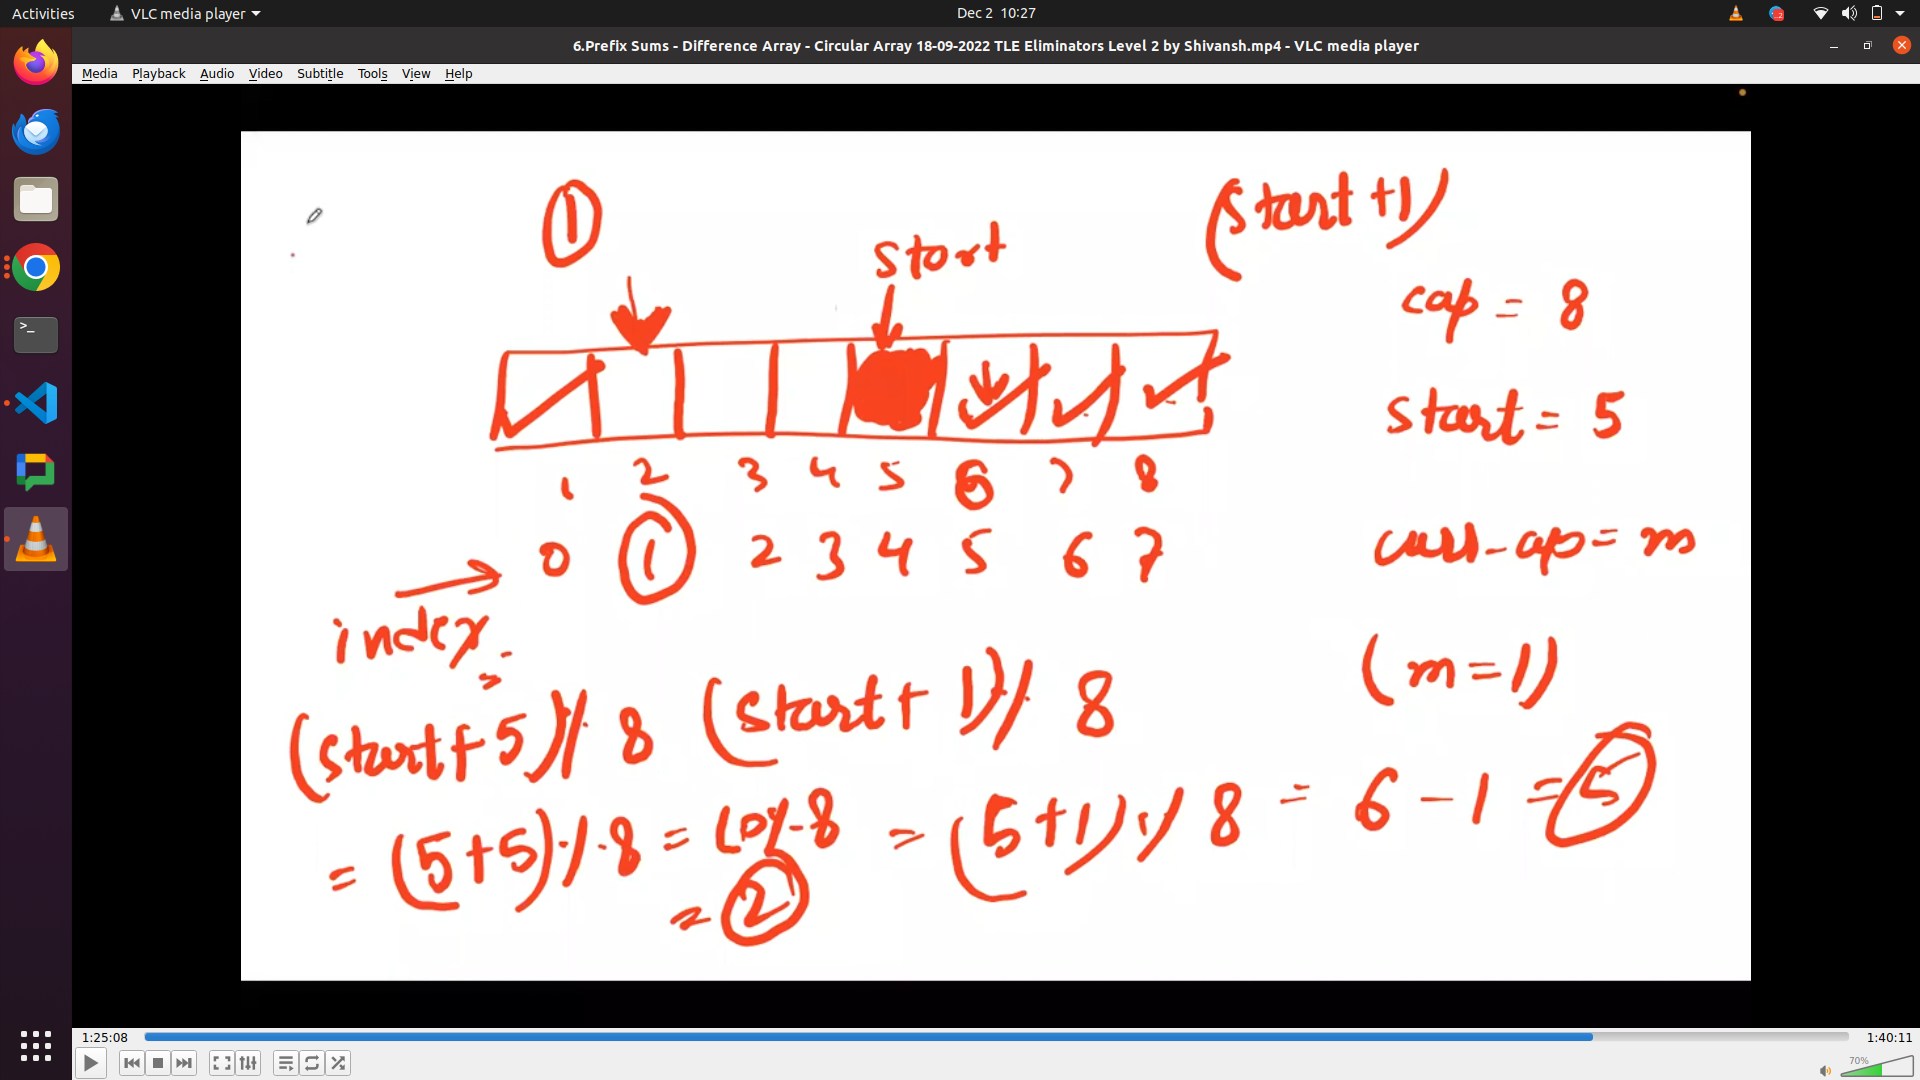 Activities VLC media player Dec 2 10:27
6.Prefix Sums - Difference Array - Circular Array 18-09-2022 TLE Eliminators Level 2 by Shivansh.mp4 - VLC media player
Media Playback Audio Video Subtitle Tools View Help
1 (start +1)
start
cap = 8
start = 5
1 2 3 4 5 6 7 8
0 1 2 3 4 5 6 7
curr-cap = m
index
(m=1)
(start + 5) % 8 (start + 1) % 8
= (5+5) % 8 = 10 % 8 = (5+1) % 8 = 6 - 1 = 5
= 2
1:25:08 1:40:11
70%